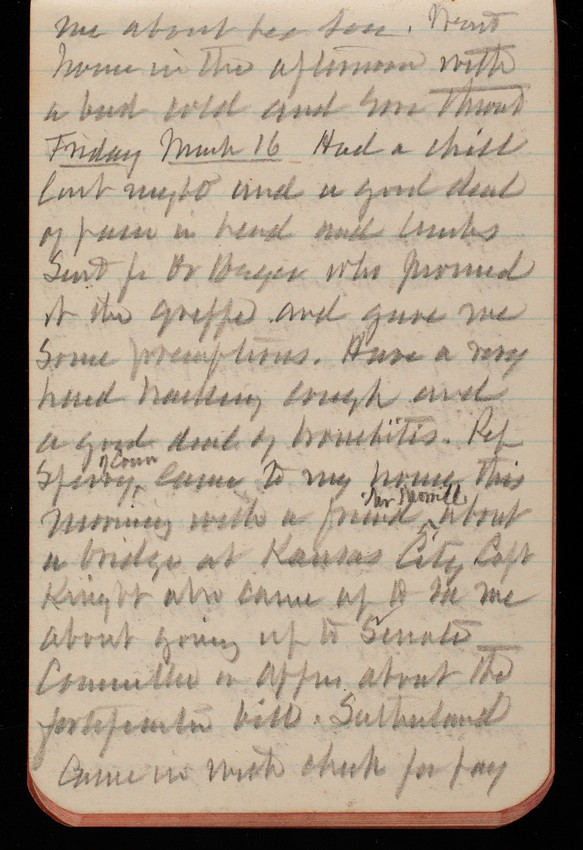 me about her son. Went
home in the afternoon with
a bad cold and sore throat
Friday March 16 Had a chill
last night and a good deal
of pain in head and limbs
Sent for Dr who
it the grippe and gave me
some. Have a very
hard hacking cough and
a good deal of bronchitis. Rep
Sperry, of Conn came to my house this
morning with a friend, Mr Morrill about
a bridge at Kansas City Capt
Knight also came up to see me
about going up to Senate
Committee on Appns about the
fortification bill. Sutherland
came in with check for pay